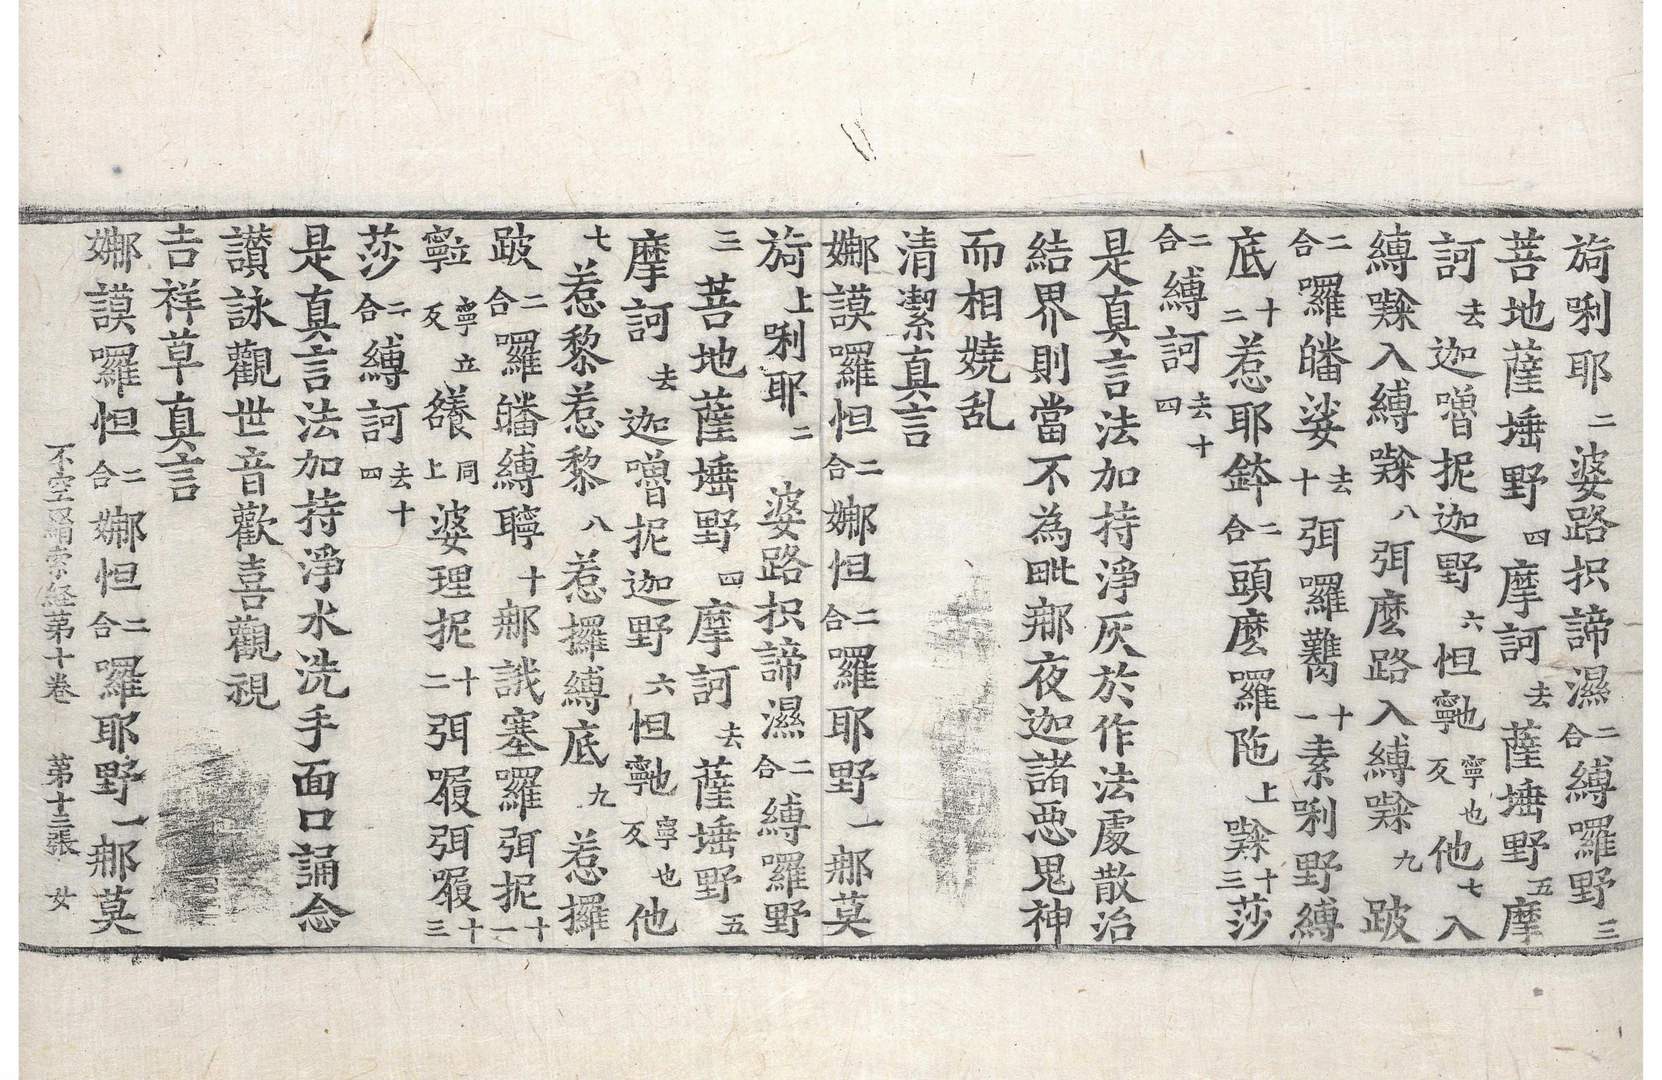 旖唎耶二婆路抧諦濕二合縛羅野三
菩地薩埵野四摩訶去薩埵野五摩
訶去迦嚕抳迦野六怛𩕳寧也反他七入
縛㘑入縛㘑八弭麽路入縛㘑九跛
二合囉皤娑去十弭囉難一十素唎野縛
底二十惹耶鉢二合頭麽囉陁上㘑三十莎
二合縛訶去十四
是真言法加持淨灰於作法處散治
結界則當不為毗那夜迦諸悪鬼神
而相嬈乱
清潔真言
娜謨囉怛二合娜怛二合囉耶野一那莫
旖上唎耶二婆路抧諦濕二合縛囉野
三菩地薩埵野四摩訶去薩埵野五
摩訶去迦嚕抳迦野六怛𩕳寧也反他
七惹黎惹黎八惹攞縛底九惹攞
跛二合囉皤縛聹十那誐塞囉弭抳十一
寧立反㘕上同婆理抳十二弭履弭履十三
莎二合縛訶去十四
是真言法加持淨水洗手面口誦念
讃詠觀世音歡喜觀視
吉祥草真言
娜謨囉怛二合娜怛二合囉耶野一那莫
不空羂索経苐十卷 苐十三張 女